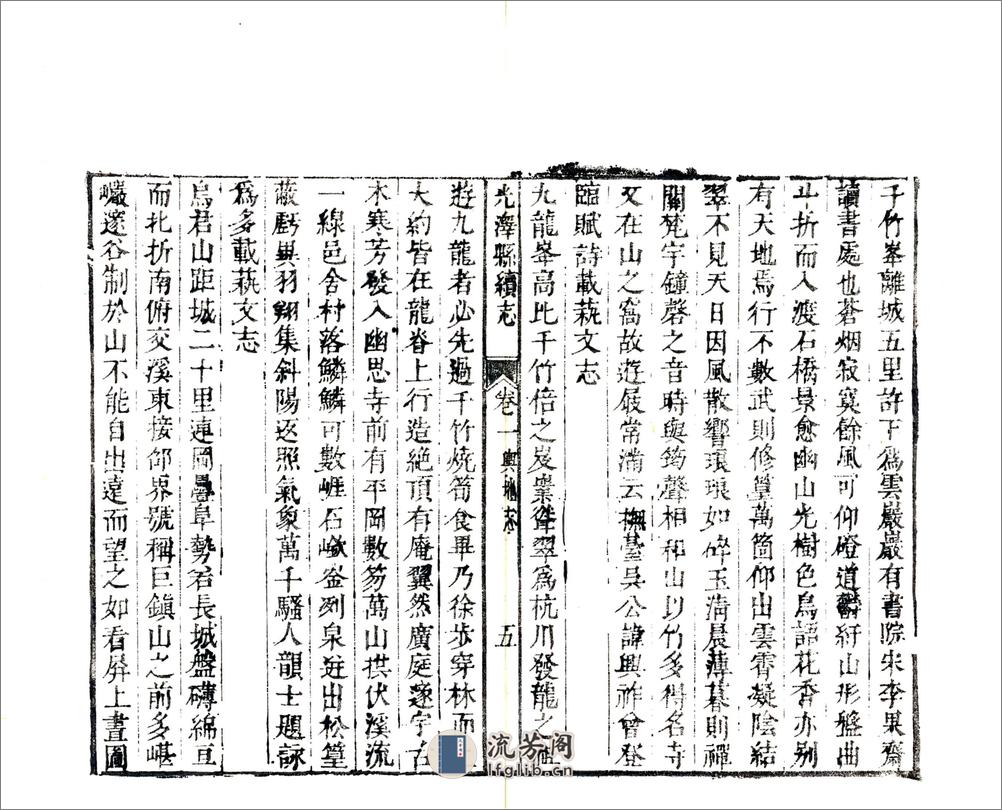 千竹峯離城五里許下爲雲巖巖有書院宋李果齋
讀書處也蒼烟寂寞餘風可仰磴道紆山形盤曲
斗折而入渡石橋景愈幽山光樹色鳥語花香亦别
有天地焉行不數武則修篁萬箇仰出雲霄凝陰結
翠不見天日因風散響琅琅如碎玉淸晨薄暮則禪
關梵宇鐘磬之音時與筠聲相和山以竹多得名寺
又在山之窩故遊屐常滿云撫臺吳公諱興祚曾登
臨賦詩載蓺文志
九龍峯高比千竹倍之岌嶪聳翠爲杭川發龍之
光澤縣續志 卷一輿地志 五
遊九龍者必先過千竹燒筍食畢乃徐步穿林而
大約皆在龍脊上行造絶頂有庵翼然廣庭邃宇古
木寒芳發入幽思寺前有平岡數笏萬山拱伏溪流
一線邑舍村落鱗鱗可數崕石崯泉迸出松篁
蔽虧異羽翔集斜陽返照氣象萬千騷人韻士題詠
爲多載蓺文志
烏君山距城二十里連岡疊阜勢若長城盤礴綿亘
而北折南俯交溪東接邵界號稱巨鎮山之前多嵁
巗邃谷制於山不能自出遠而望之如看屏上畫圖
流芳阁
lfglib.cn